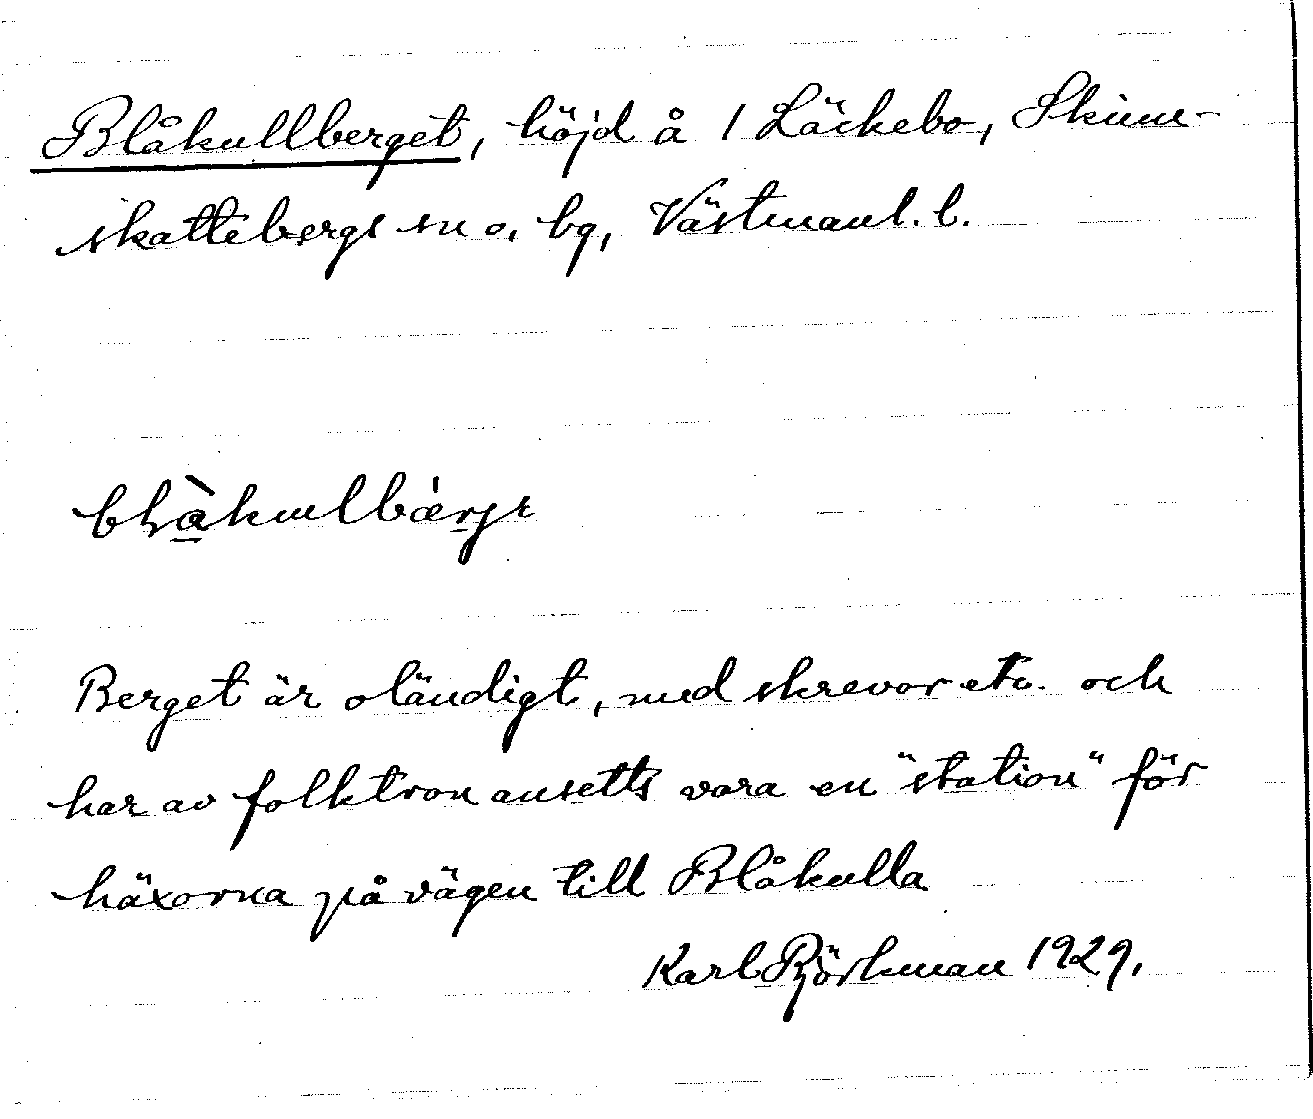 Blåkullberget, höjd å 1 Läckebo, Skinn-
skattebergs sn o. bg, Västmanl. l.
Berget är oländigt, med skrevor etc. och
har av folktron ansetts vara en "station" för
häxorna på vägen till Blåkulla
Karl Björkman 1929.